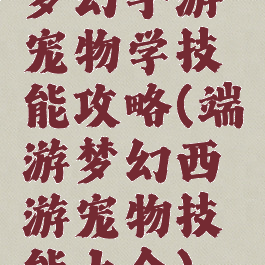 梦幻手游
宠物学技
能攻略(端
游梦幻西
游宠物技
能大全)